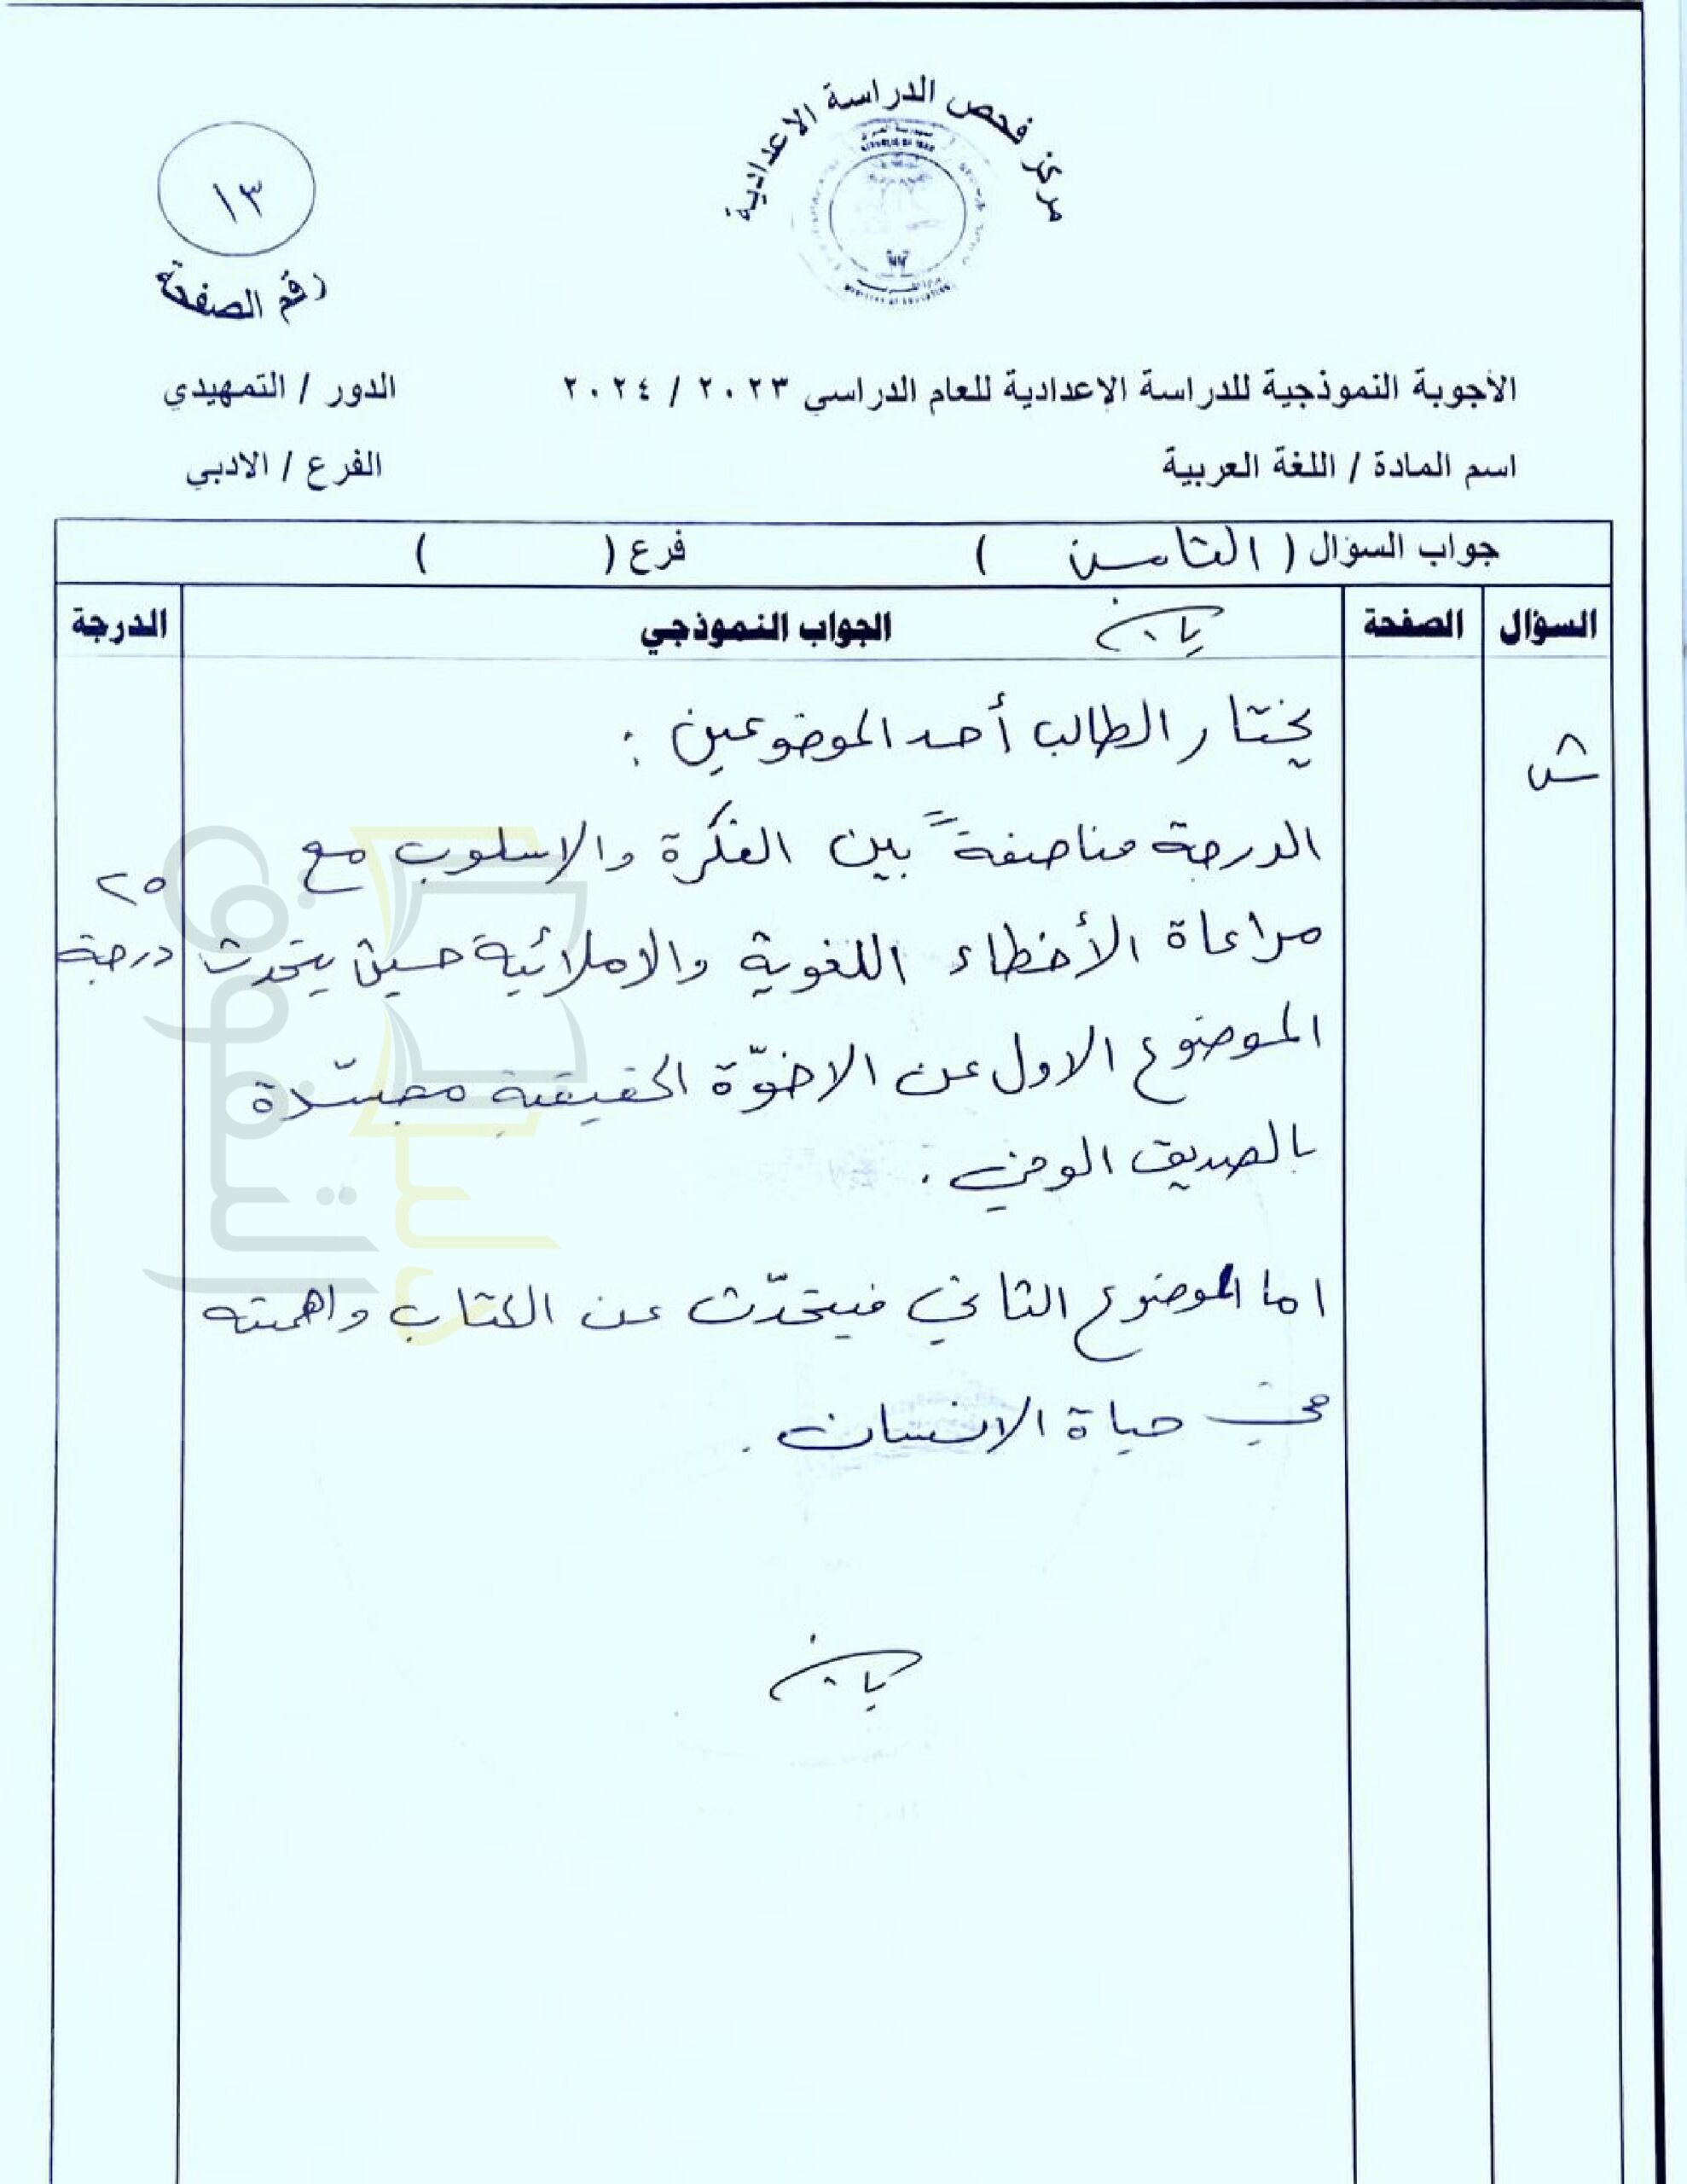 مركز فحص الدراسة الاعدادية
١٣
رقم الصفحة
الأجوبة النموذجية للدراسة الإعدادية للعام الدراسي ٢٠٢٣ / ٢٠٢٤
الدور / التمهيدي
اسم المادة / اللغة العربية
الفرع / الادبي
جواب السؤال ( الثامن ) فرع ( )
السؤال الصفحة الجواب النموذجي الدرجة
يختار الطالب أحد الموضوعين :
س٨
الدرجة مناصفةً بين الفكرة والاسلوب مع
٢٥
مراعاة الأخطاء اللغوية والاملائية حيث يتحدث
درجة
الموضوع الاول عن الاخوّة الحقيقية مجسّدة
بالصديق الوفي .
اما الموضوع الثاني فيتحدّث عن الكتاب واهميته
في حياة الانسان .